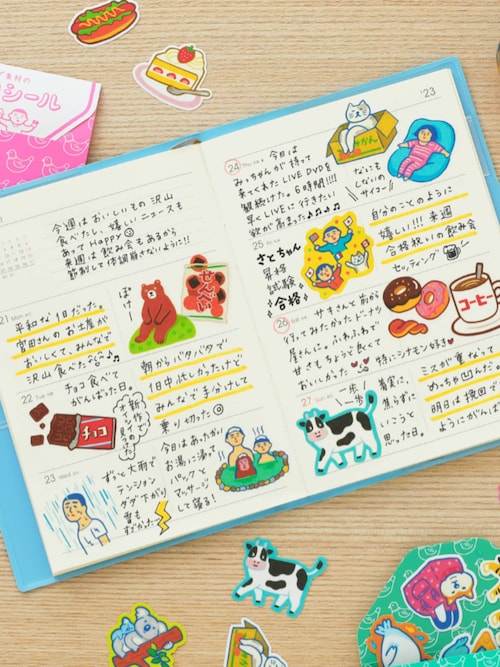 シール
'23
今週はおいしいもの沢山
食べたし、嬉しいニュースも
あってHappy
来週は飲み会もあるから
節制して体調崩さないように!!
21 Mon
平和な1日だった。
官田さんのお土産が
おいしくて、みんなで
沢山食べた
ぽけー
せんべい
22 Tue
チョコ食べて
がんばった日。
チョコ
朝からバタバタで
1日中忙しかったけど
みんなで手分けして
乗り切った
23 Wed
ずっと大雨で
テンション
ダダ下がり
雷も
すごかった
今日はあったかい
お湯に浸って
パックと
マッサージ
して寝る!
24 Thu
今日は
みっちゃんが持って
来てくれたLIVE DVDを
観続けた。6時間!!!!
早くLIVEに行きたい
欲が高まった♪♪♪
みかん
なにも
しないの
サイコー
25 Fri
さとちゃん
昇格
試験
合格
自分のことのように
嬉しい!!! 来週
合格祝いの飲み会
セッティング
コーヒー
26 Sat
サキさんと前から
行ってみたかったドーナツ
屋さんに。ふわふわで
甘さもちょうど良くて
おいしかった
特にシナモン好き
27 Sun
一歩
一歩
着実に、
焦らずに
いこうと
思った日。
ミスが重なって
めっちゃ凹んだ。
明日は挽回できる
ようにがんばる